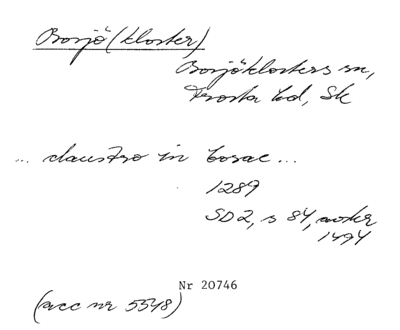 Bosjö (kloster)
Bosjöklosters sn,
Frosta hd, Sk
... claustro in bosae ...
1289
SD2, s 84, avskr
1494
Nr 20746
(acc nr 5548)